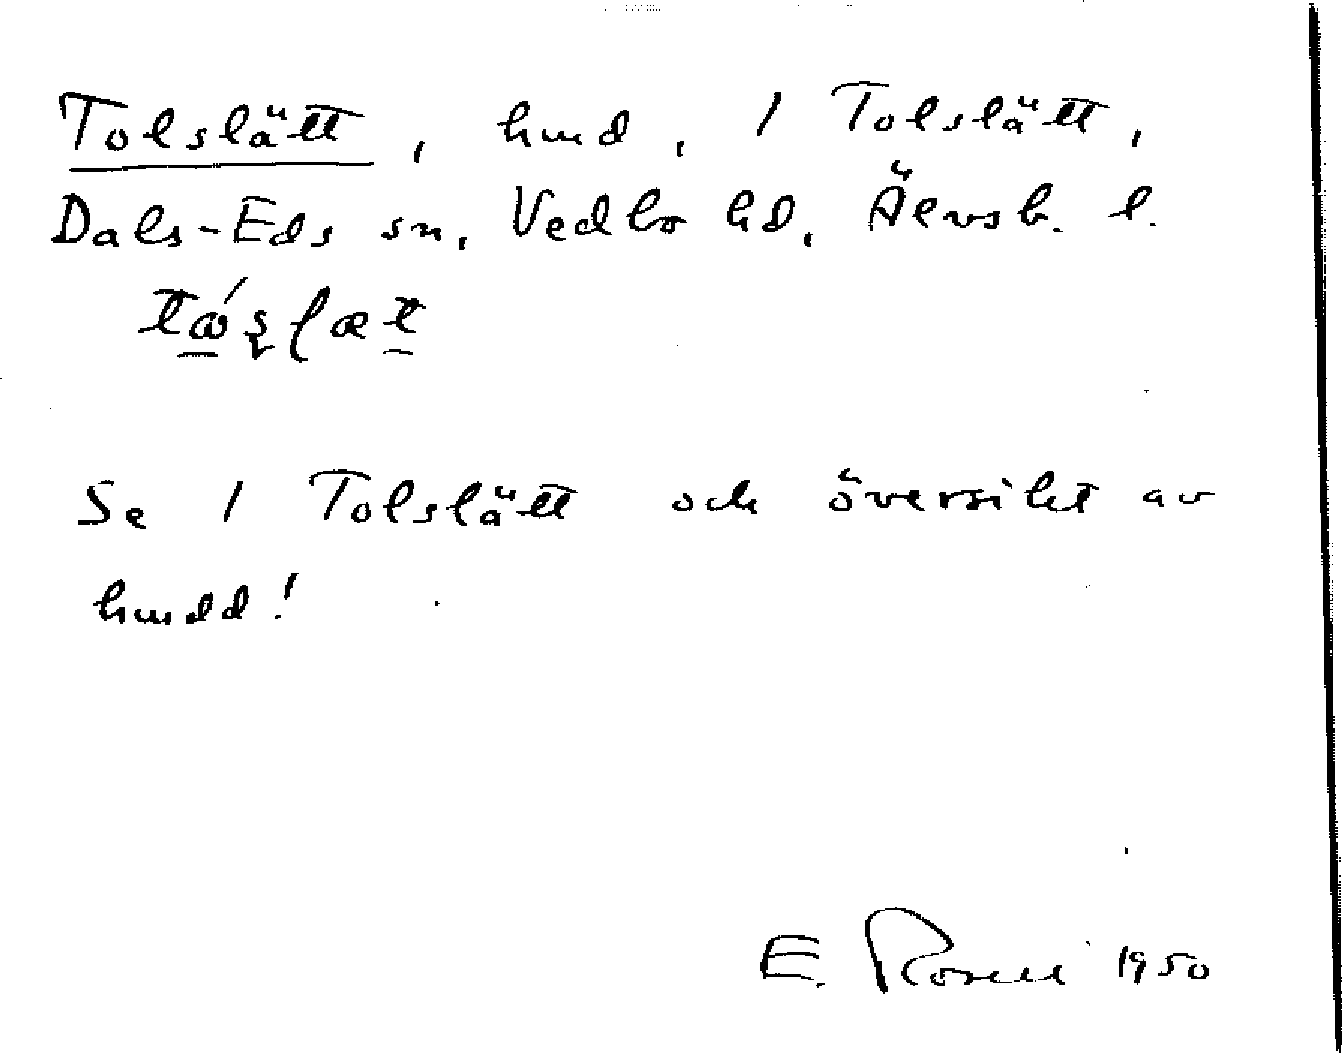 Tolslätt, hmd, 1 Tolslätt,
Dals-Eds sn, Vedbo hd, Älvsb. l.
Se 1 Tolslätt och översikt av
hmdd!
E. Rosell 1950